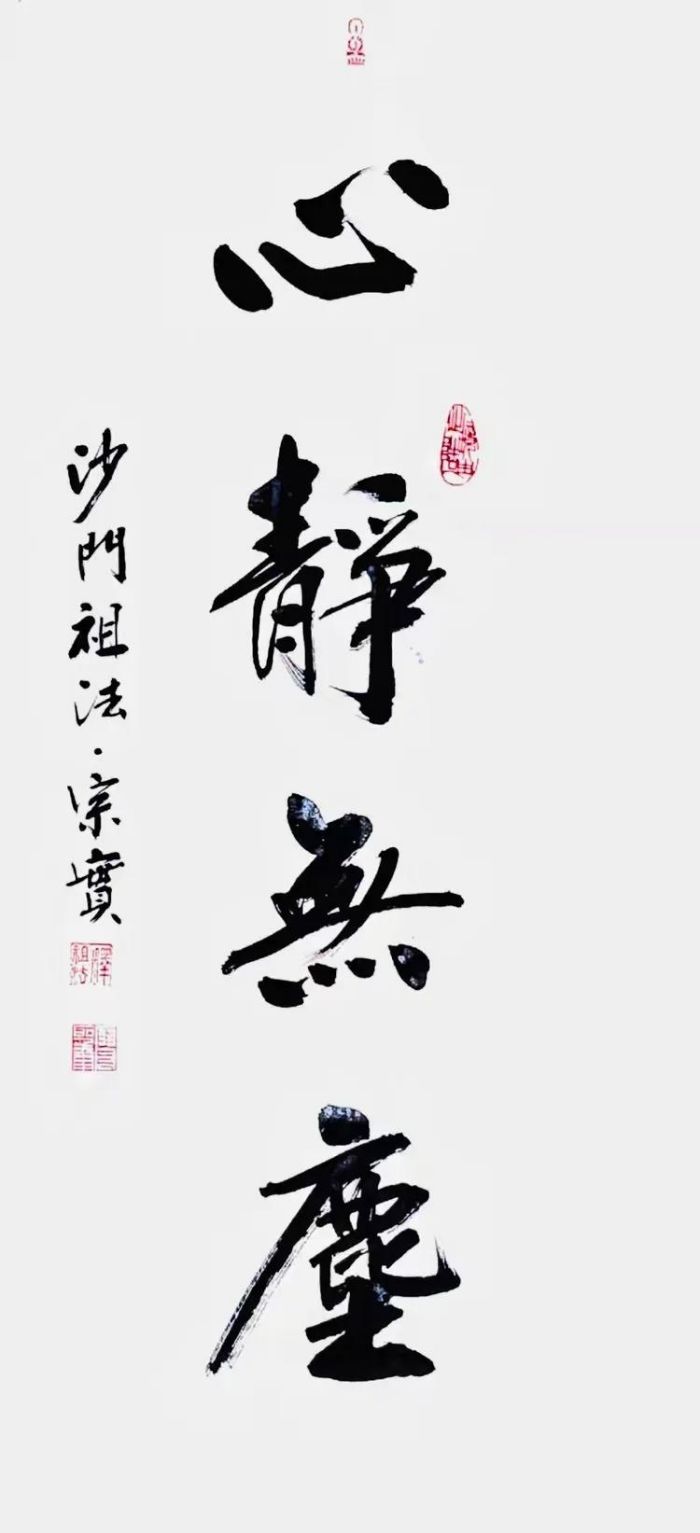 心靜無塵
沙門祖法·宗實